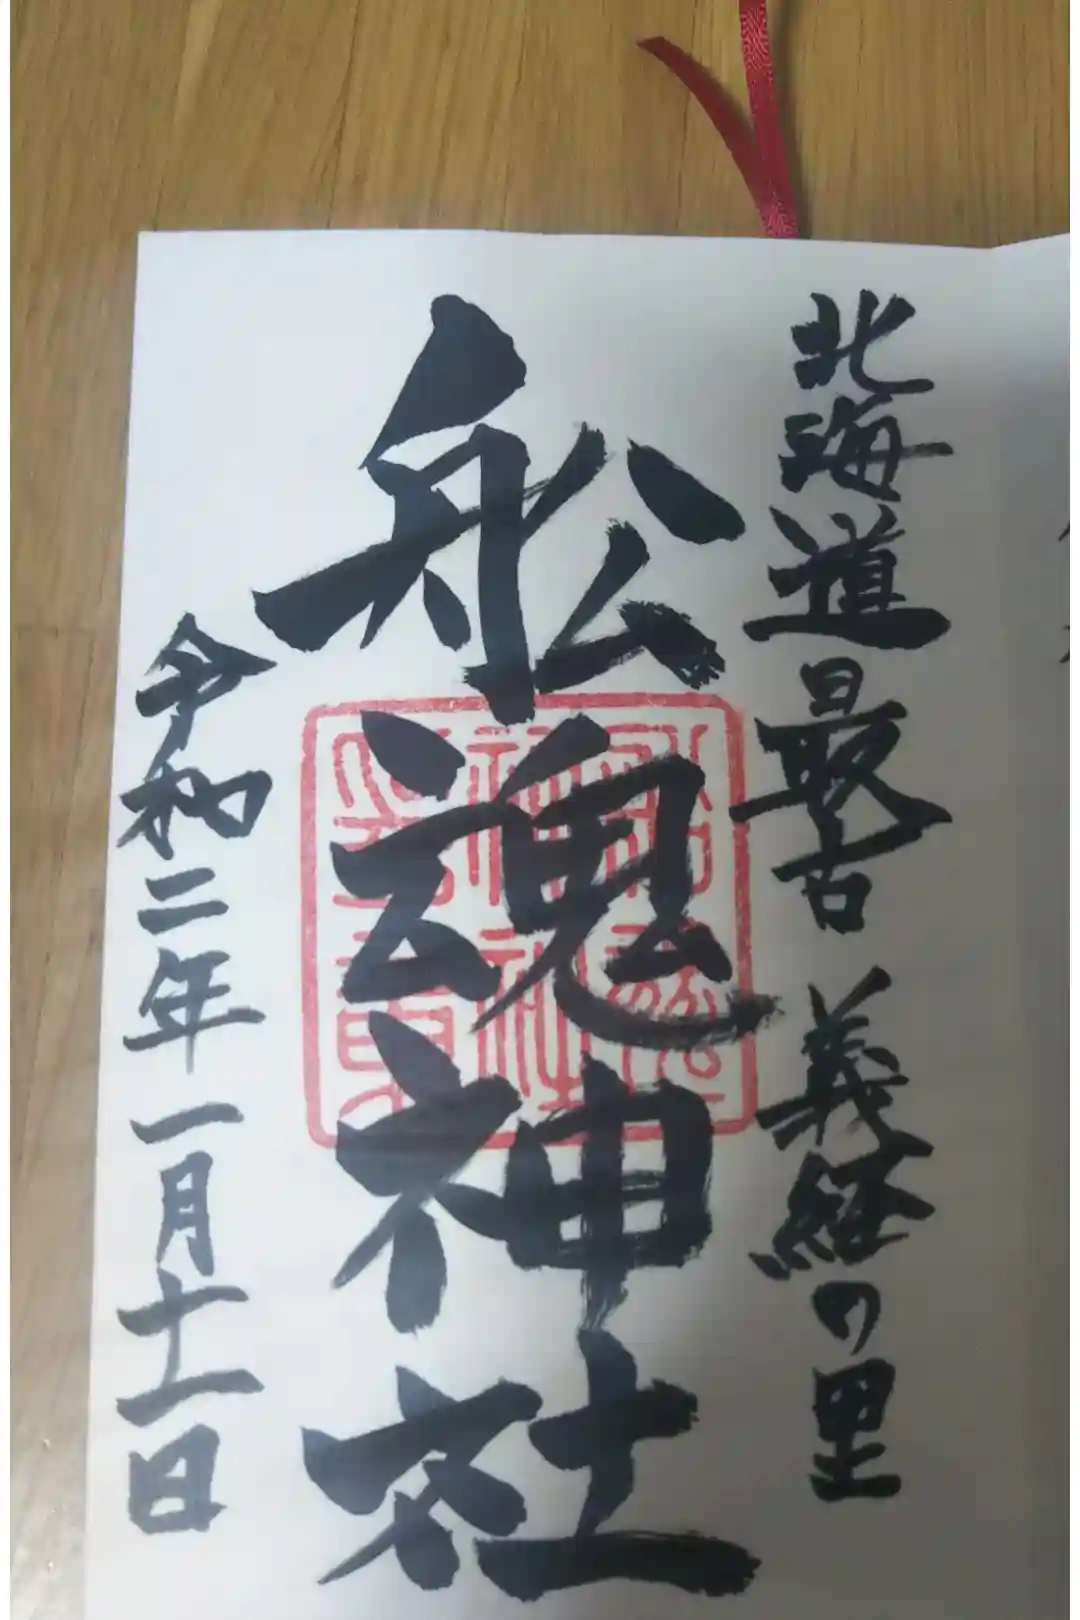 北海道最古 義経の里
舩魂神社
令和二年一月十一日